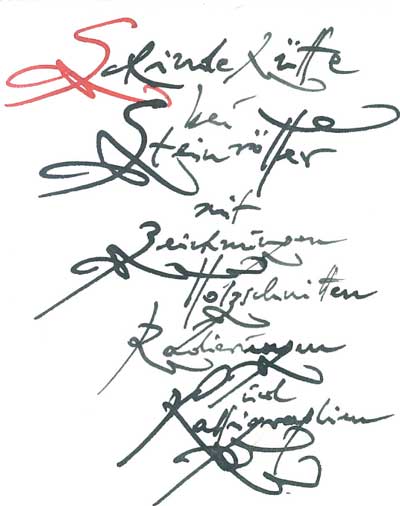 Schindehütte
bei
Steinrötter
mit
Zeichnungen
Holzschnitten
Radierungen
und
Kalligraphien